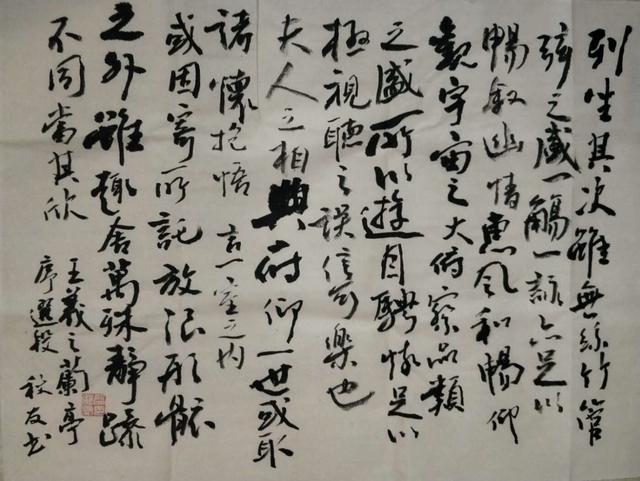 列坐其次雖無絲竹管
弦之盛一觴一詠亦足以
暢敘幽情惠風和暢仰
觀宇宙之大俯察品類
之盛所以遊目騁懷足以
極視聽之誤信可樂也
夫人之相與俯仰一世或取
諸懷抱悟言一室之內
或因寄所託放浪形骸
之外雖趣舍萬殊靜躁
不同當其欣
王羲之蘭亭
序選段 友书